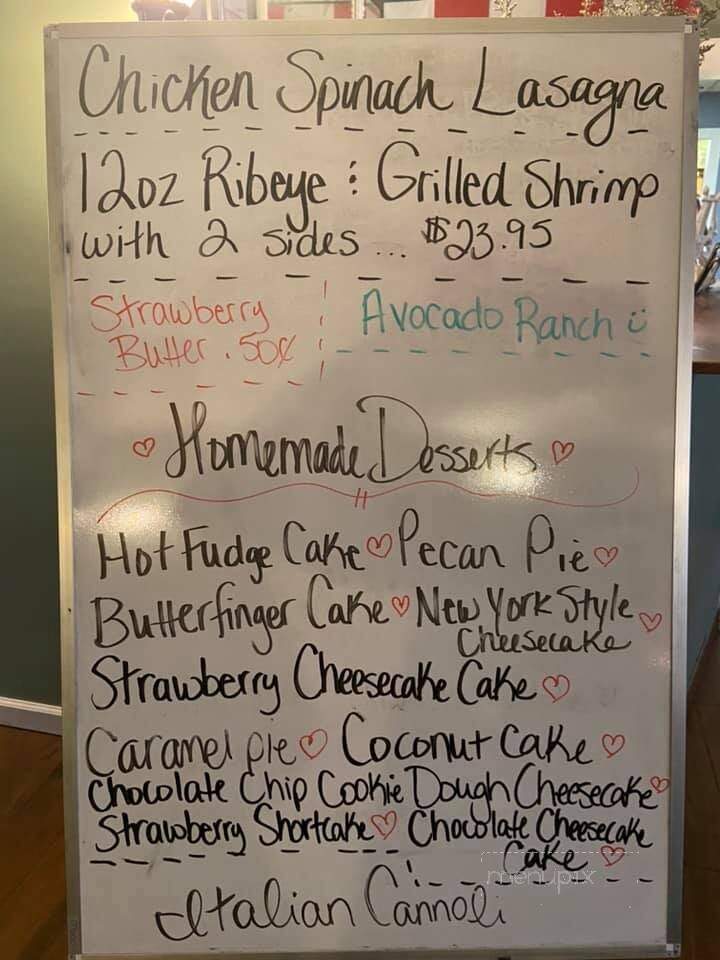 Chicken Spinach Lasagna
12oz Ribeye : Grilled Shrimp
with 2 sides ... $23.95
Strawberry
Butter .50¢
Avocado Ranch
Homemade Desserts
Hot Fudge Cake Pecan Pie
Butterfinger Cake New York Style
Cheesecake
Strawberry Cheesecake Cake
Caramel pie Coconut Cake
Chocolate Chip Cookie Dough Cheesecake
Strawberry Shortcake Chocolate Cheesecake
Cake
menupix
Italian Cannoli